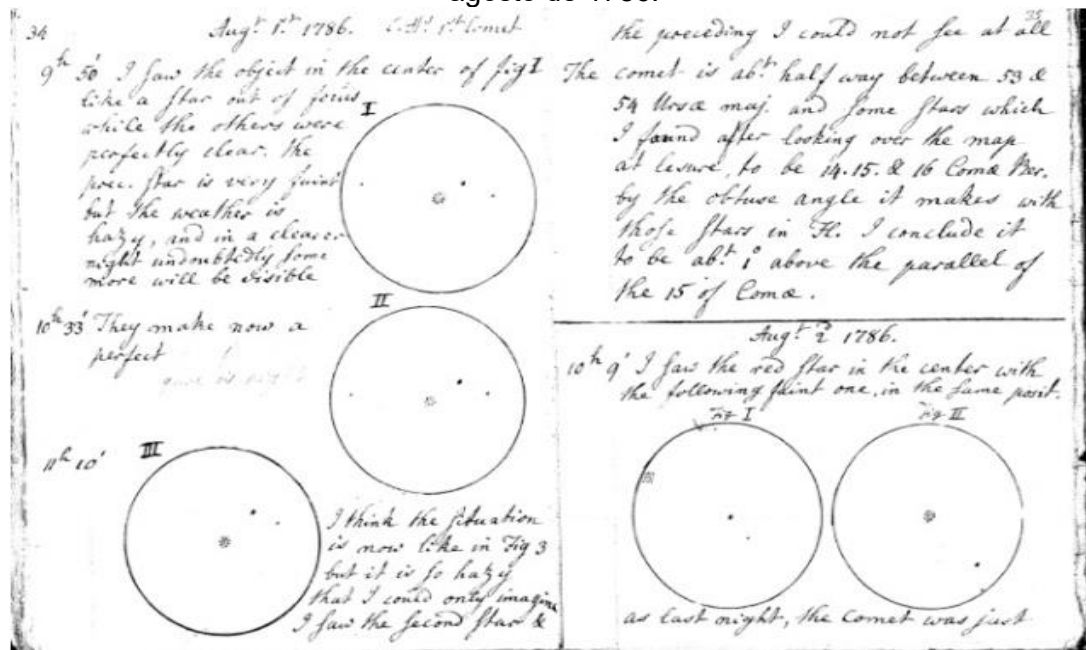 agosto de 1786.
34
Augt 1st 1786. C. H's 1st Comet
9h 50' I saw the object in the center of fig I
like a star out of focus
while the others were
perfectly clear. the
prec. star is very faint
but the weather is
hazy, and in a clearer
night undoubtedly some
more will be visible
I
II
10h 33' They make now a
perfect
III
11h 10'
I think the situation
is now like in Fig 3
but it is so hazy
that I could only imagine
I saw the second star &
35
the preceding I could not see at all
The comet is abt half way between 53 &
54 Ursæ maj. and some stars which
I found after looking over the map
at lesure, to be 14. 15. & 16 Comæ Ber.
by the obtuse angle it makes with
those stars in Fl. I conclude it
to be abt 1° above the parallel of
the 15 of Comæ.
Augt 2d 1786.
10h 9' I saw the red star in the center with
the following faint one, in the same posit.
Fig I
Fig II
as last night, the Comet was just